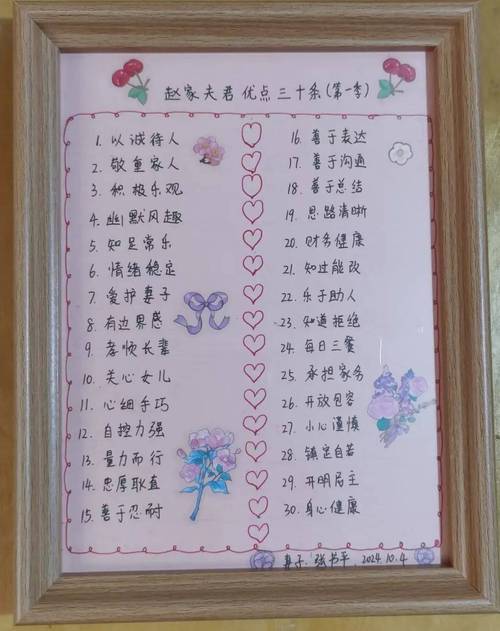 赵家夫君优点三十条(第一季)
1. 以诚待人
2. 敬重家人
3. 积极乐观
4. 幽默风趣
5. 知足常乐
6. 情绪稳定
7. 爱护妻子
8. 有边界感
9. 孝顺长辈
10. 关心女儿
11. 心细手巧
12. 自控力强
13. 量力而行
14. 忠厚耿直
15. 善于忍耐
16. 善于表达
17. 善于沟通
18. 善于总结
19. 思路清晰
20. 财务健康
21. 知过能改
22. 乐于助人
23. 知道拒绝
24. 每日三餐
25. 承担家务
26. 开放包容
27. 小心谨慎
28. 镇定自若
29. 开明民主
30. 身心健康
妻子:张书平 2024.10.4